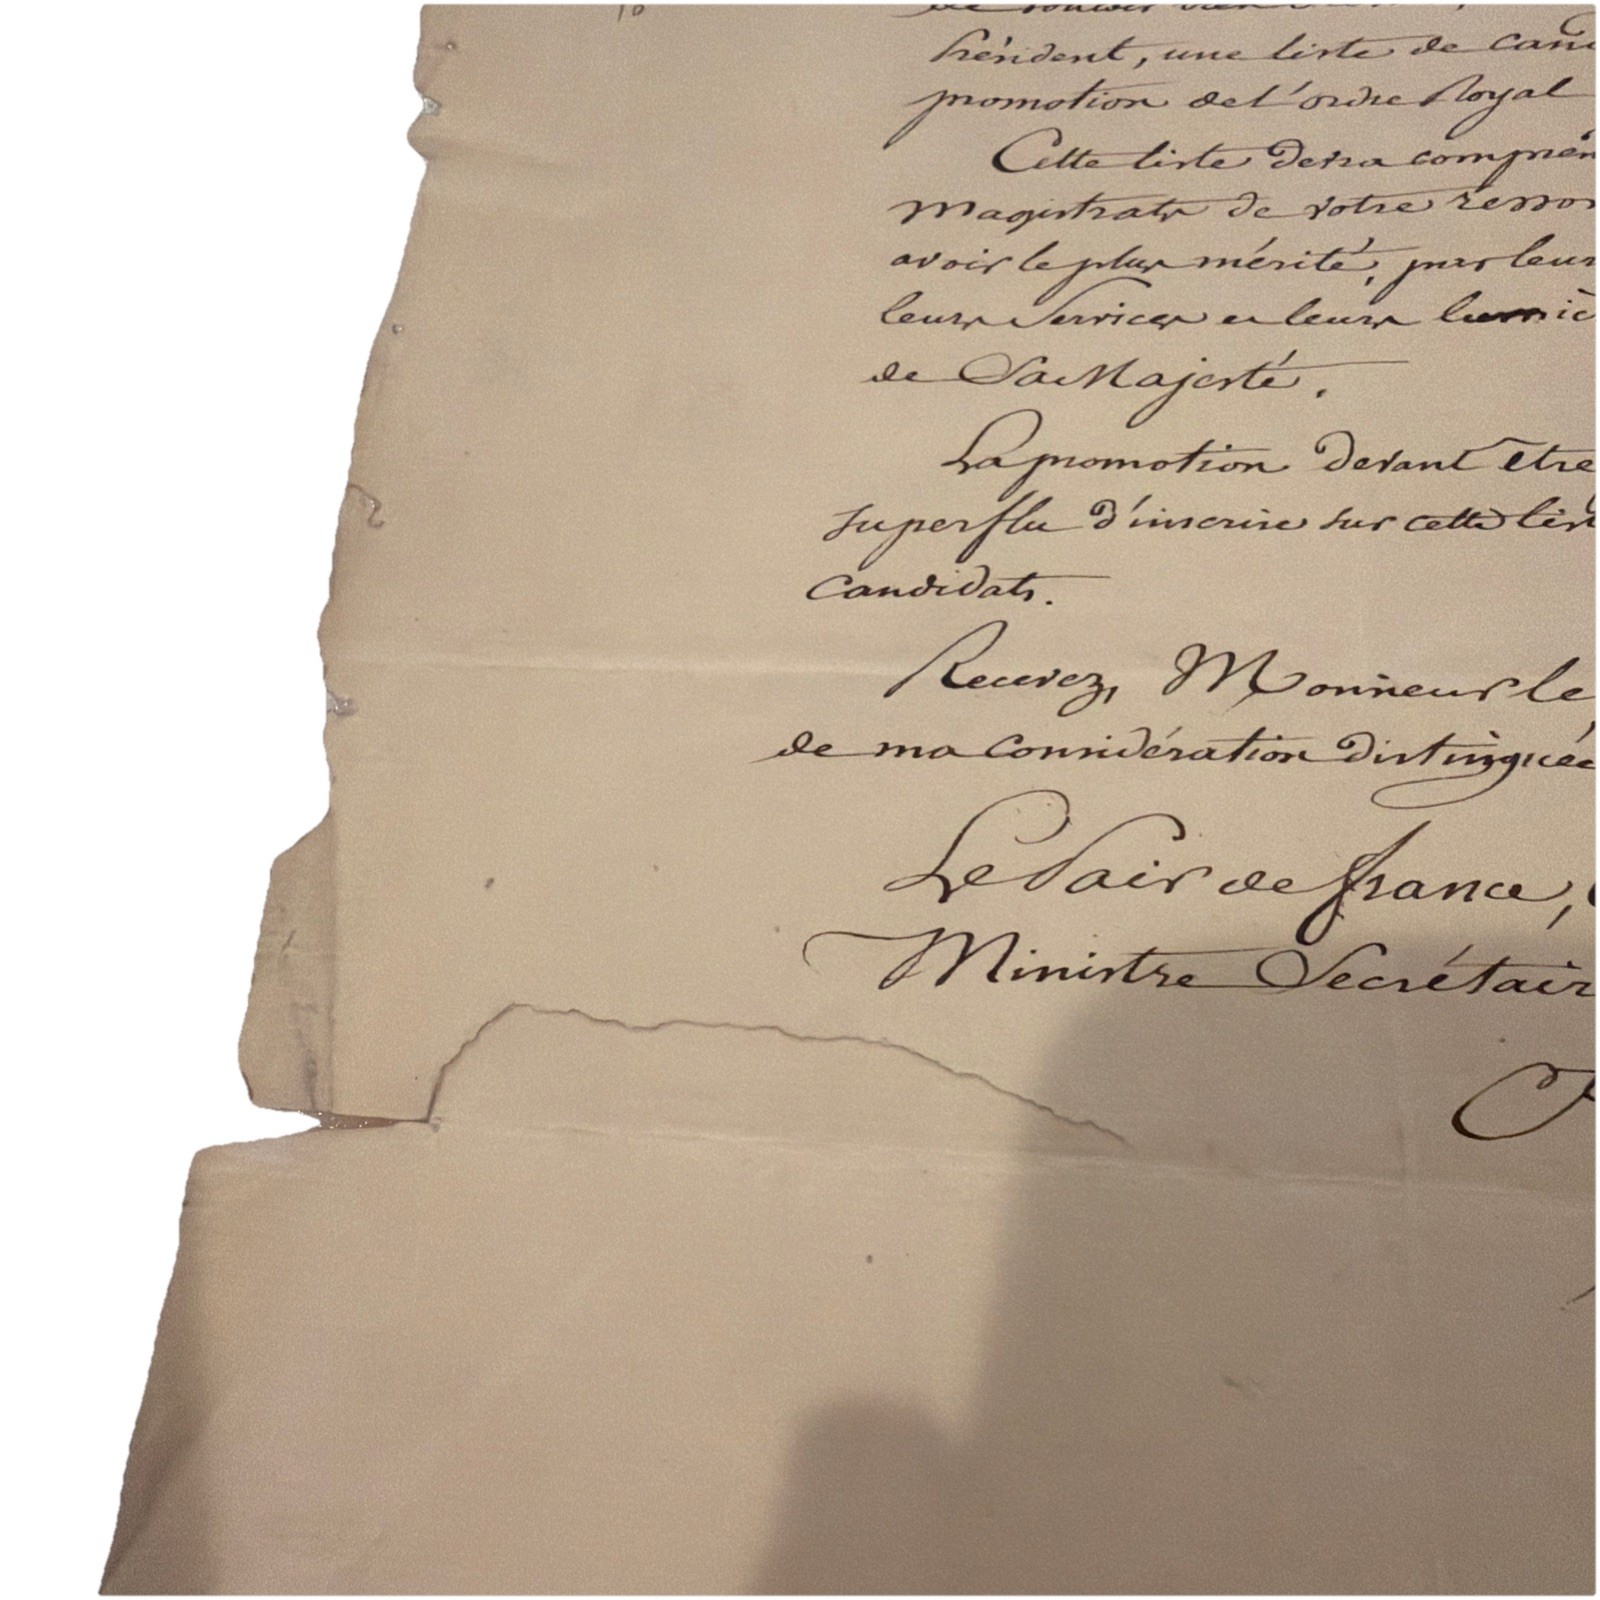 de vouloir bien
Président, une liste de can
promotion de l'ordre Royal
Cette liste devra compren
Magistrats de votre ressor
avoir le plus mérité, par leur
leurs Services et leurs lumiè
de Sa Majesté.
La promotion devant être
superflu d'inscrire sur cette lis
candidats.
Recevez, Monsieur le
de ma considération distinguée
Le Pair de france,
Ministre Secrétair